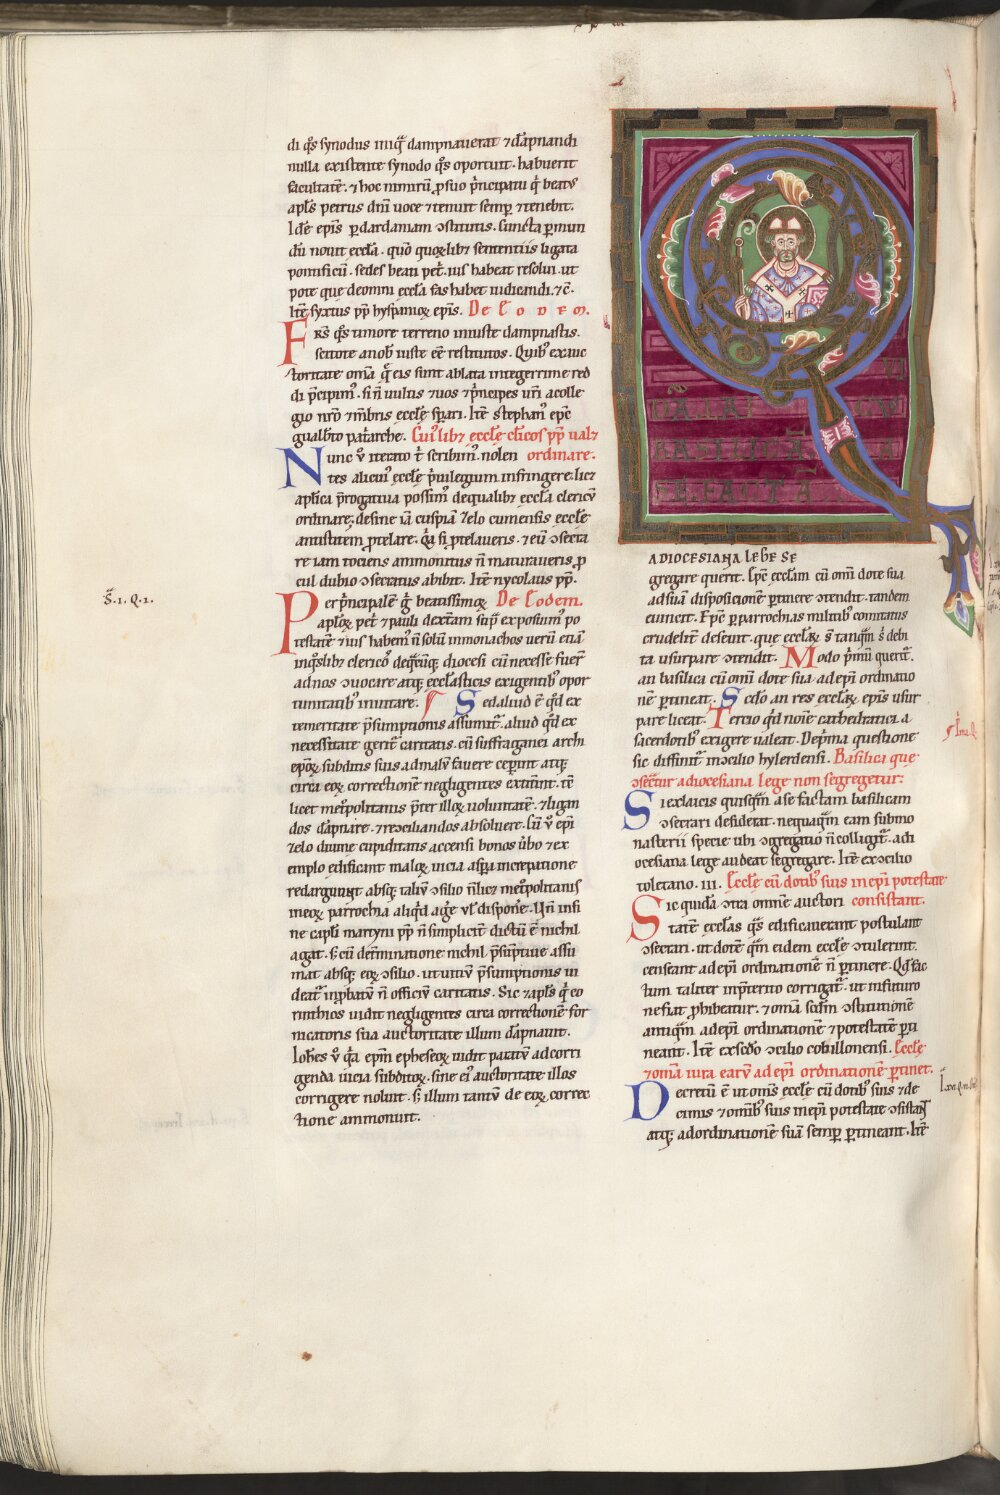 di qͦs synodus iniq̄ dampnauerat ⁊ dāpnandi
nulla existente synodo qͦs oportuit . habuerit
facultatē . ⁊ hoc nimirū ꝓ suo p̄ncipatu q̄ beatꝰ
apl̄s petrus dn̄i uoce ⁊ tenuit semꝑ ⁊ tenebit .
Idē epis ꝑ dardaniam ↄstitutis . Cuncta ꝑ mun
dū nouit eccl̄a . quō quorūlibꝫ sententiis ligata
pontificū . sedes beati pet̄ . ius habeat resoluī . ut
pote que de omni eccl̄a fas habet iudicandi . ⁊c̄ .
Itē syxtus pp̄ hyspanioꝝ epis . De Eodem .
Fr̄s qͦs timore terreno iniuste dampnastis .
scitote a nob iuste eē restitutos . Quibꝰ ex auc
toritate om̄a q̄ eis sunt ablata integerrime red
di p̄cipimꝰ . si n̄ uultis ⁊ uos ⁊ p̄ncipes ur̄i a colle
gio nr̄o ⁊ mēbris eccl̄ę sꝑari . Itē stephanꝰ epc̄
gualbto pat̄arche . Cuiꝰlibꝫ eccl̄ę cl̄icos pp̄ ualꝫ
Nunc ů iterato t̄ scribimꝰ . nolen ordinare .
tes alicuiꝰ eccl̄ę p̄uilegium infringere . licꝫ
aplica p̄rogatiua possimꝰ de qualibꝫ eccl̄a clericū
ordinare ; desine iā cuspiā ⁊elo cumensis eccl̄ę
antistitem ꝓtelare . Qͥa si ꝓtelaueris . ⁊ eū ↄsecra
re iam tociens ammonitus n̄ maturaueris ꝓ
cul dubio ↄsecratus abibit . Itē nycolaus pp̄ .
Per p̄ncipalē g̊ beatissimoꝝ De Eodem .
aploꝝ pet̄ ⁊ pauli dextam sup̄ expositum po
testatē ⁊ ius habemꝰ n̄ solū monachos uerū etiā
inqͦslibꝫ clericoꝫ de q̄cūqꝫ diocesi cū necesse fuerͭ
ad nos ↄuocare atqꝫ eccl̄asticis exigentibꝰ opor
tunitatibꝰ inuitare . ¶ Sed aliud ē qͦd ex
temeritate p̄sumptionis assumitͬ . aliud qͦd ex
necessitate geritͬ caritatis . cū suffraganei archi
ep̄oꝝ subditis suis ad malū fauere ceperint atqꝫ
circa eoꝝ correctionē negligentes extitint . tē
licet met̄politanus p̄ter illoꝝ uoluntatē . ⁊ ligan
dos dāpnare . ⁊ recↄciliandos absoluere . Cū ů epi
⁊elo diuine cupiditatis accensi bonos ůbo ⁊ ex
emplo edificant maloꝝ uicia aspa increpatione
redarguunt absqꝫ taliū ↄsilio n̄ licꝫ met̄politanis
in eoꝝ parrochia aliqͥd ag̅e ul̄ disponē . Un̄ in fi
ne capl̄i martyni pp̄ n̄ simpliciē dictū ē nichil
agat . s̄ cū det̄minatione nichil p̄sūptiue assu
mat absqꝫ eoꝝ ↄsilio . ut uitiū p̄sumptionis ui
deatͬ in ꝓbatū n̄ officiū caritatis . Sic ⁊ apl̄s q̄ eo
rinthios uidit negligentes circa correctionē for
nicatoris sua auctoritate illum dāpnauit .
Ioh̄es ů q̄a epm̄ epheseoꝝ uidit paratū ad corri
genda uicia subditoꝝ . sine eiꝰ auctoritate illos
corrigere noluit . s̄ illum tantū de eoꝝ correc
tione ammonuit .
S̄ . 1 . Q . 1 .
VI
DĀ LAI CUS
BASILICĀ A
SE FACTĀ
A DIOCESIANA LEGE SE
gregare querit . Epc̄ eccl̄am cū om̄i dote sua
ad suā dispositionē ꝑtinere ↄtendit . tandem
euincit . Epc̄ ꝑ parrochias militibꝰ comitatus
crudelitͬ deseuit . que eccl̄aꝝ s̄ tanqͣm s̄ debi
ta usurpare ↄtendit . Modo p̄mū queritͬ .
an basilica cū om̄i dote sua ad epi ordinatio
nē ꝑtineat . Scd̄o an res eccl̄aꝝ epis usur
pare liceat . Tercio qͦd noīe cathedratici a
sacerdotibꝰ exigere ualeat . De p̄ma questione
sic diffinitͬ in ↄcilio hylerdensi . Basilica que
ↄsecratͬ a diocesiana lege non segregetur :
Si ex laicis quisqͣm a se factam basilicam
ↄsecrari desiderat . nequaqͣm eam sub mo
nasterii specie ubi ↄgregatio n̄ colligitͬ . a di
ocesiana lege audeat segregare . Itē ex ↄcilio
toletano . III . Eccl̄ę cū dotibꝰ suis in epi potestate
Sic quidā ↄtra omnē auctori consistant .
tatē eccl̄as qͣs edificauerant postulant
ↄsecrari . ut dotē qͣm eidem eccl̄ę ↄtulerint .
censeant ad epi ordinationē n̄ ꝑtinere . Qͦd fac
tum taliter in p̄terito corrigatͬ . ut in futuro
ne fiat ꝓhibeatur . ⁊ om̄a scd̄m ↄstitutionē
antiqͣm ad epi ordinationē ⁊ potestatē ꝑti
neant . Itē ex scd̄o ↄcilio cobillonensi . Eccl̄ę
⁊ om̄a iura earū ad epi ordinationē ꝑtinet .
Decretū ē ut om̄s eccl̄ę cū dotibꝰ suis ⁊ de
cimis ⁊ om̄ibꝰ suis in epi potestate ↄsistant
atqꝫ ad ordinationē suā semꝑ ꝑtineant . Itē